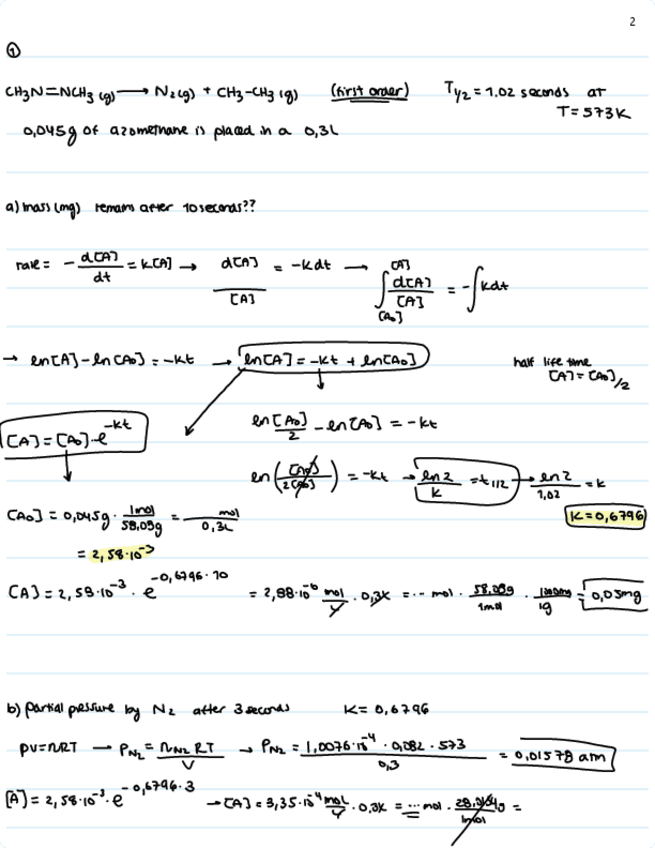 2
①
CH3N=NCH3 (g) → N2(g) + CH3-CH3 (g) (first order) T1/2 = 1.02 seconds at
T = 573K
0,045g of azomethane is placed in a 0,3L
a) mass (mg) remains after 10 seconds??
rate = - d[A]/dt = k[A] → d[A]/[A] = -kdt → ∫[A0]^[A] d[A]/[A] = -∫kdt
→ ln[A] - ln[A0] = -kt → ln[A] = -kt + ln[A0]
half life time
[A] = [A0]/2
[A] = [A0]·e^-kt
ln [A0]/2 - ln[A0] = -kt
ln ([A0]/2[A0]) = -kt → ln2/k = t1/2 → ln2/1,02 = k
[A0] = 0,045g · 1mol/58,09g = mol/0,3L
K = 0,6796
= 2,58·10^-3
[A] = 2,58·10^-3 · e^-0,6796·10 = 2,88·10^-6 mol/L · 0,3L = ... mol · 58.09g/1mol · 1000mg/1g = 0,05mg
b) Partial pressure by N2 after 3 seconds K = 0,6796
PV=nRT → PN2 = nN2 RT/V → PN2 = 1,0076·10^-4 · 0,082 · 573/0,3 = 0,01578 atm
[A] = 2,58·10^-3 · e^-0,6796·3 → [A] = 3,35·10^-4 mol/L · 0,3L = ... mol · =